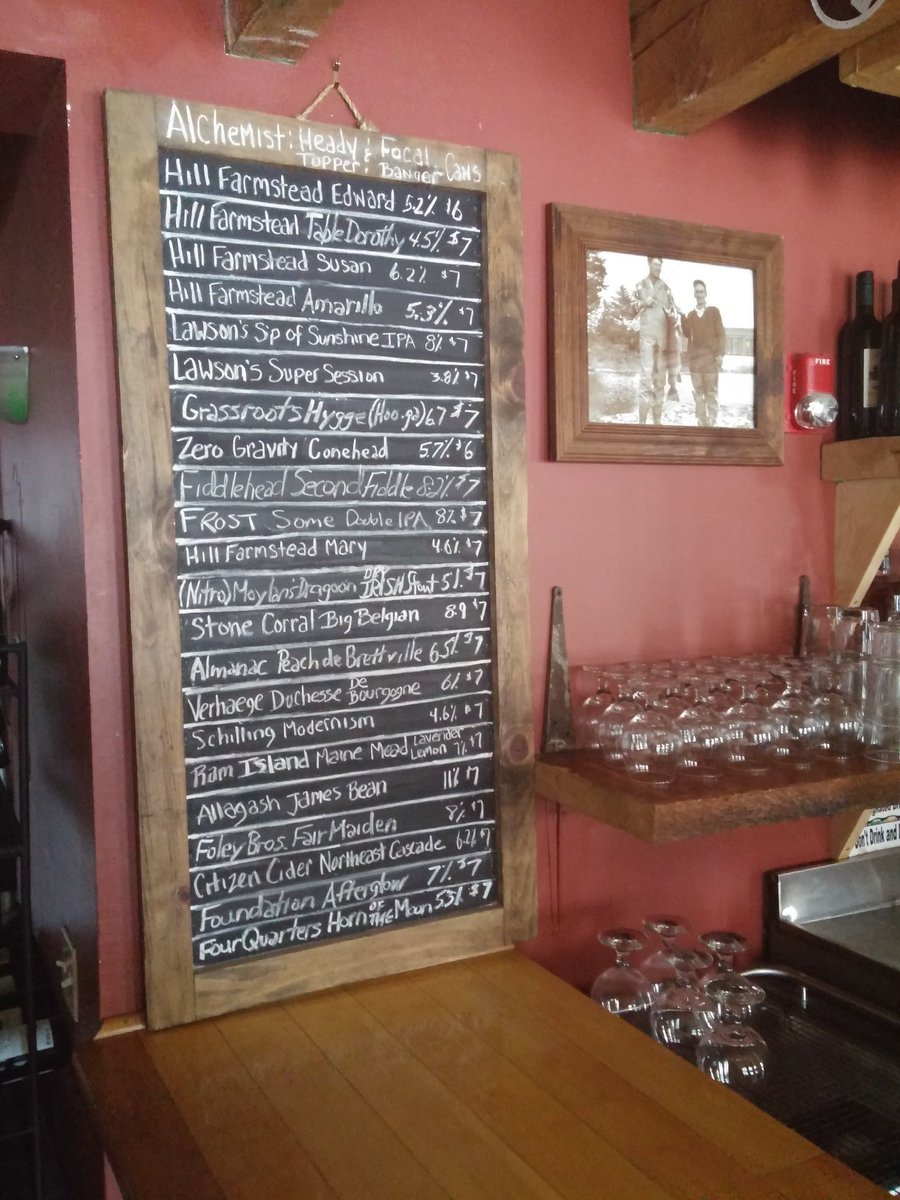 Alchemist: Heady & Focal. Cans
Topper: Banger
Hill Farmstead Edward 5.2% $6
Hill Farmstead Table Dorothy 4.5% $7
Hill Farmstead Susan 6.2% $7
Hill Farmstead Amarillo 5.3% $7
Lawson's Sip of Sunshine IPA 8% $7
Lawson's Super Session 3.8% $7
Grassroots Hygge (Hoo-ga) 6.7 $7
Zero Gravity Conehead 5.7% $6
Fiddlehead Second Fiddle 8.2% $7
FROST Some Double IPA 8% $7
Hill Farmstead Mary 4.6% $7
(Nitro) Moylan's Dragoon DRY IRISH Stout 5% $7
Stone Corral Big Belgian 8.9 $7
Almanac Peach de Brettville 6.5% $7
Verhaege Duchesse DE Bourgogne 6% $7
Schilling Modernism 4.6% $7
Ram Island Maine Mead Lavender Lemon 7% $7
Allagash James Bean 11% 7
Foley Bros. Fair Maiden 8% $7
Citizen Cider Northeast Cascade 6.2% 7
Foundation Afterglow 7% $7
Four Quarters Horn OF THE Moon 5.5% $7
FIRE
FIRE
Don't Drink and D